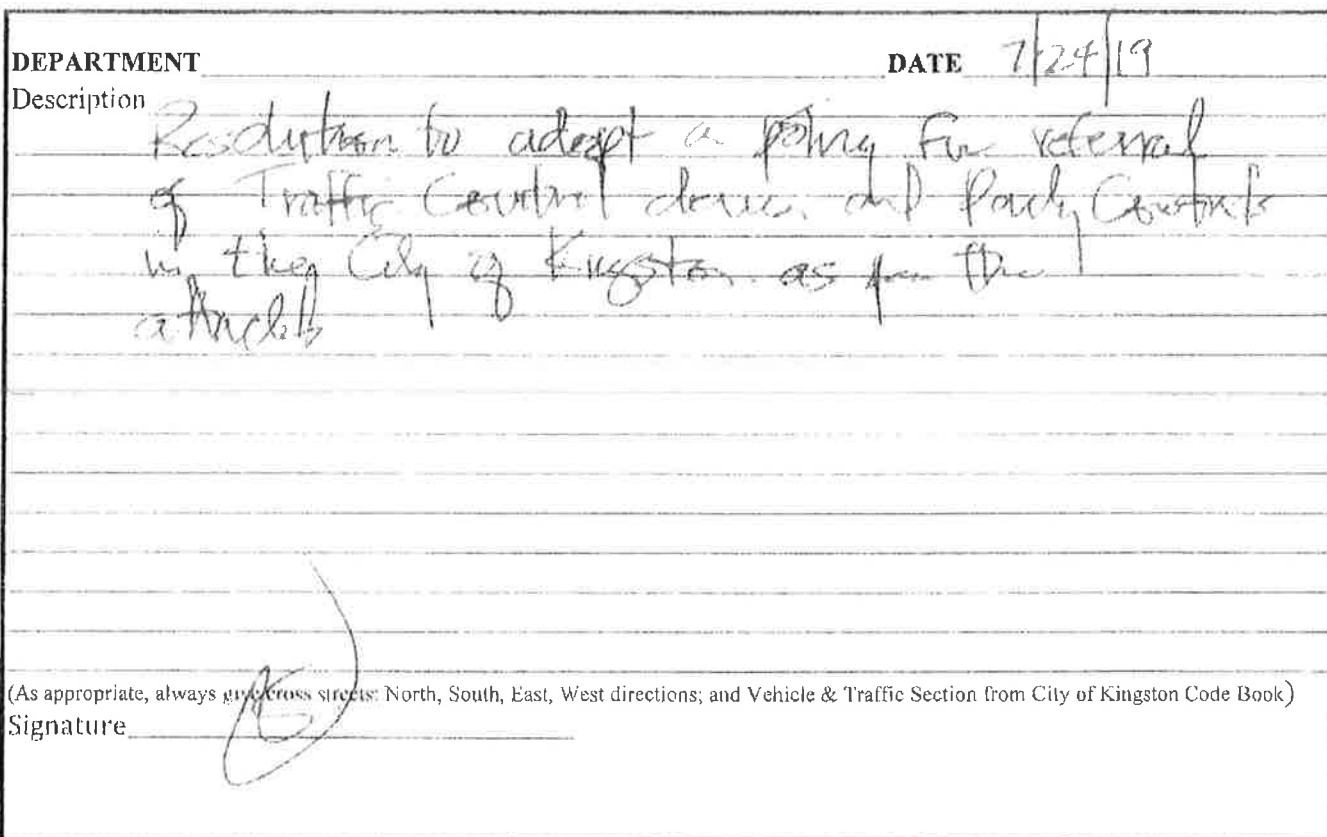 DEPARTMENT DATE 7/24/19
Description
Resolution to adopt a policy for referral
of Traffic Control devices and Parking Controls
in the City of Kingston as per the
attached
(As appropriate, always give cross streets: North, South, East, West directions; and Vehicle & Traffic Section from City of Kingston Code Book)
Signature